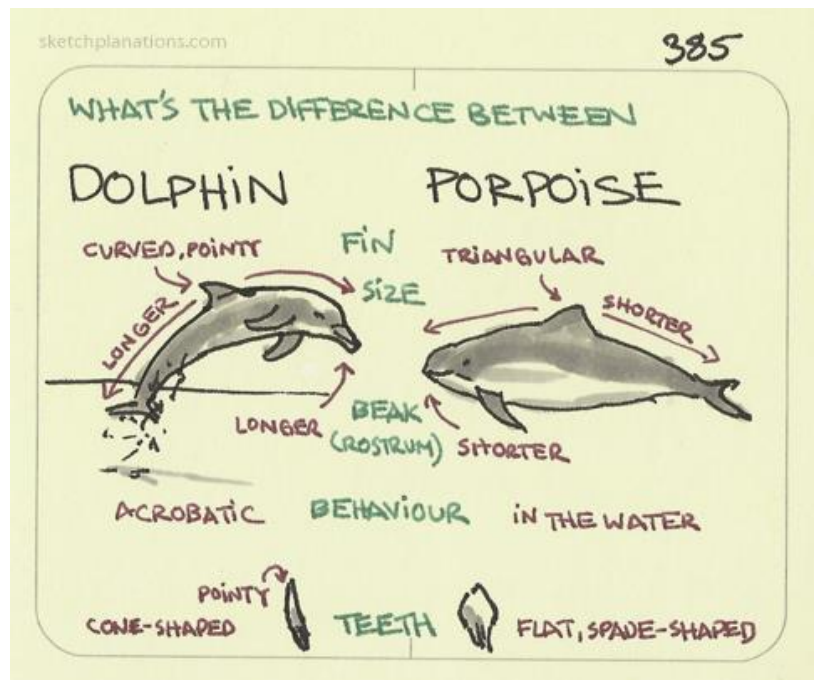 sketchplanations.com
385
WHAT'S THE DIFFERENCE BETWEEN
DOLPHiN PORPOiSE
CURVED, POiNTY FiN TRiANGULAR
LONGER SiZE SHORTER
LONGER BEAK
(ROSTRUM) SHORTER
ACROBATiC BEHAViOUR iN THE WATER
POiNTY
CONE-SHAPED TEETH FLAT, SPADE-SHAPED